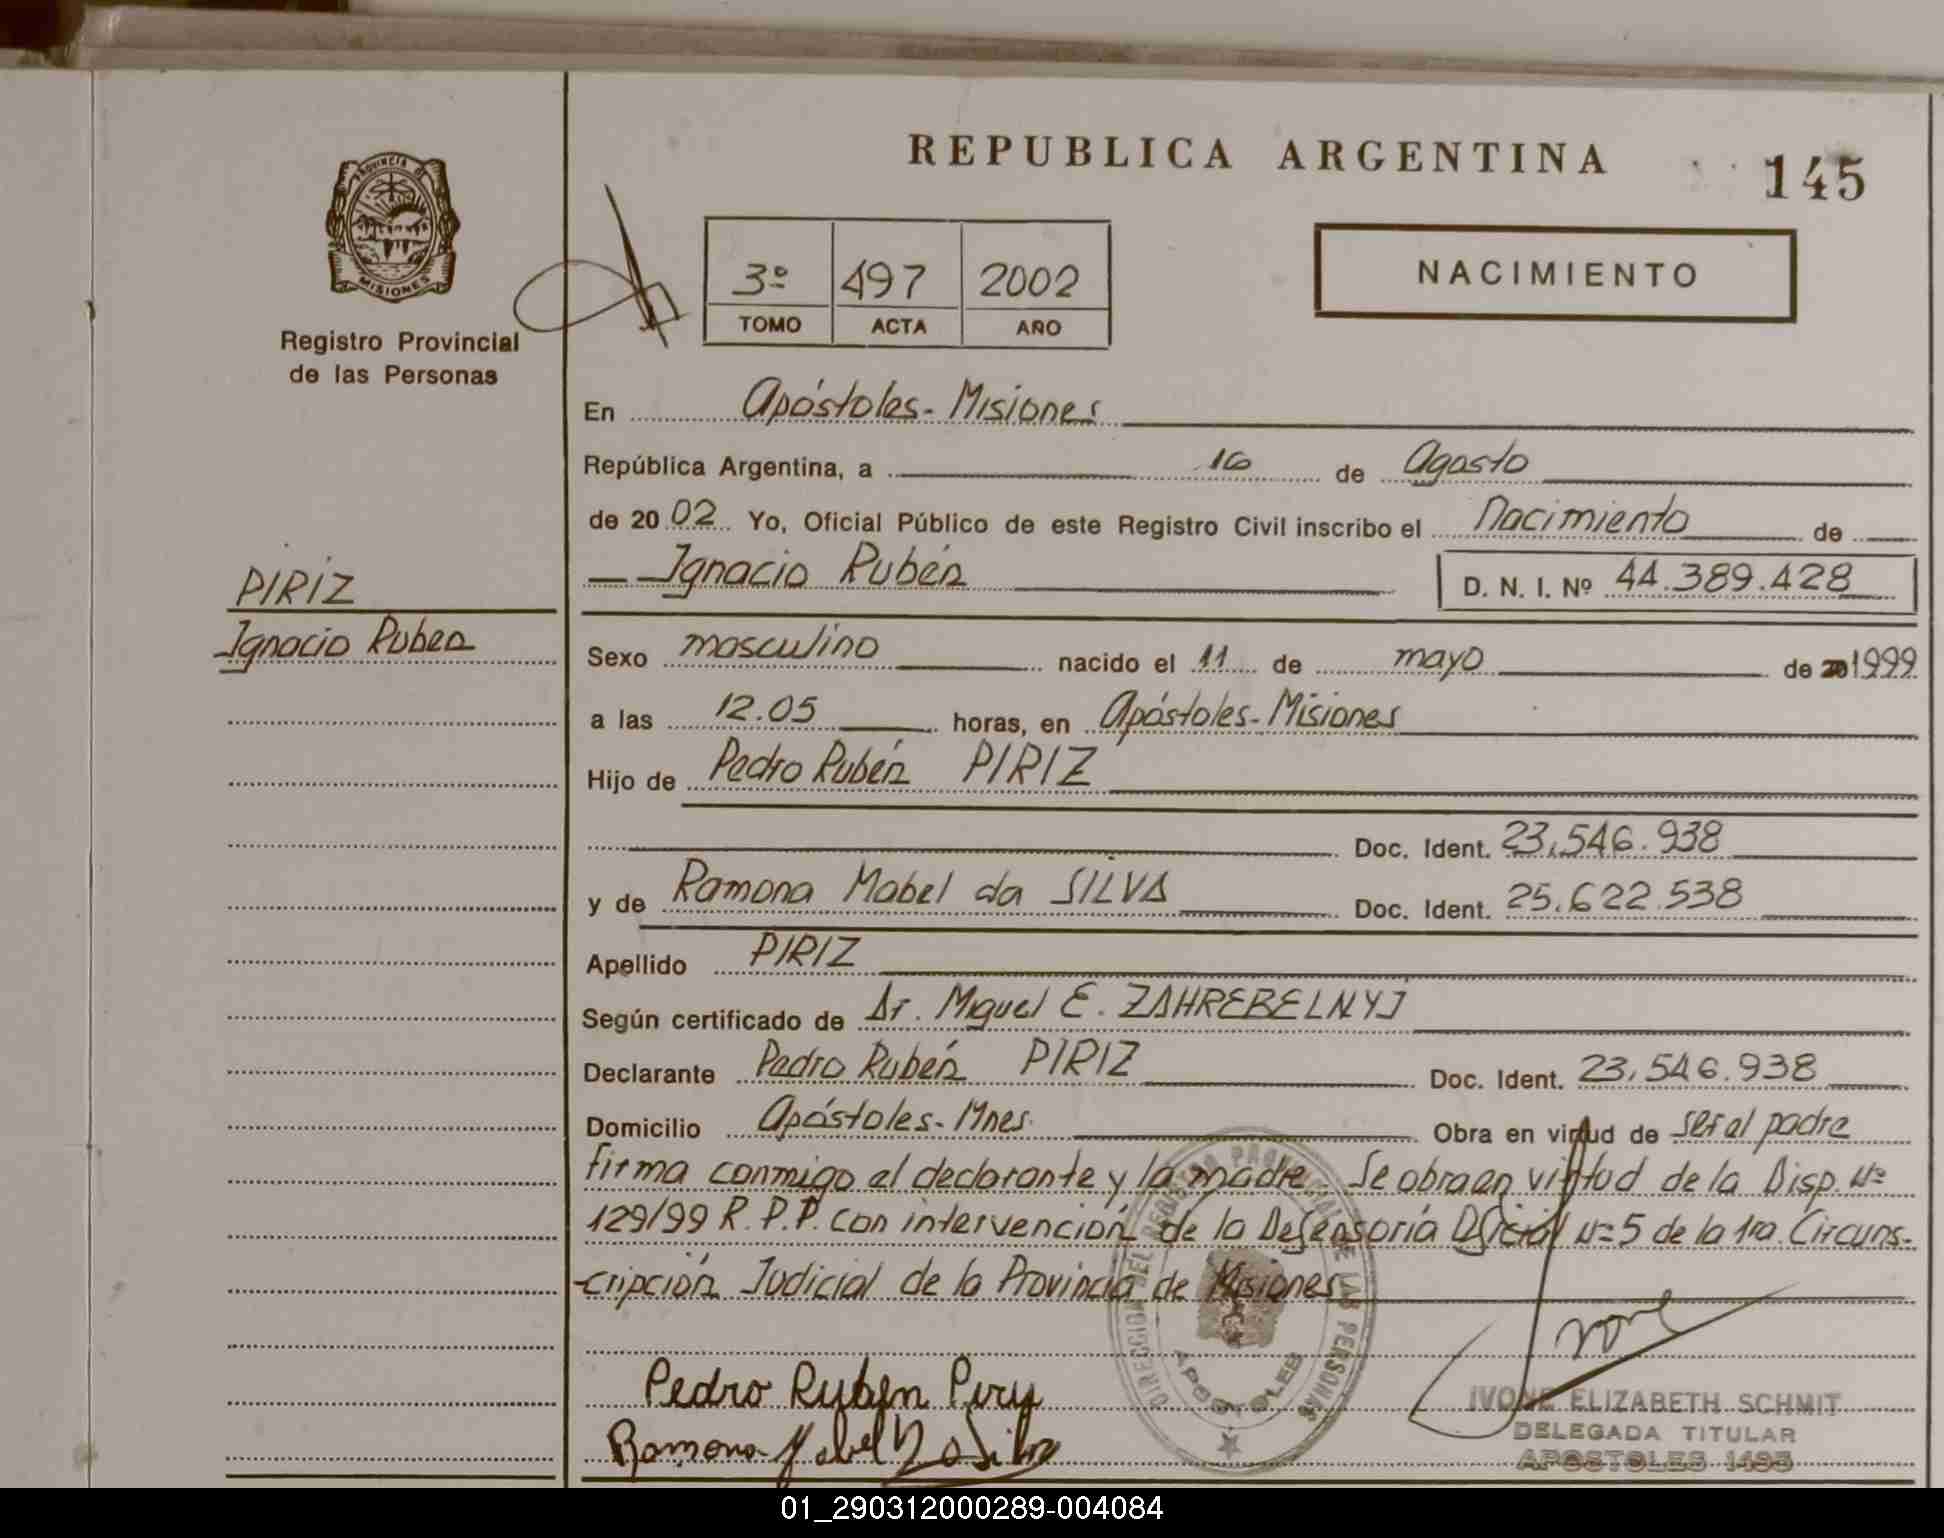 REPUBLICA ARGENTINA
145
PROVINCIA DE
MISIONES
Registro Provincial
de las Personas
3º 497 2002
TOMO ACTA AÑO
NACIMIENTO
En Apóstoles - Misiones
República Argentina, a 16 de Agosto
de 20 02 Yo, Oficial Público de este Registro Civil inscribo el Nacimiento de
Ignacio Rubén D. N. I. Nº 44.389.428
PIRIZ
Ignacio Ruben
Sexo masculino nacido el 11 de mayo de 1999
a las 12.05 horas, en Apóstoles - Misiones
Hijo de Pedro Rubén PIRIZ
Doc. Ident. 23.546.938
y de Ramona Mabel da SILVA Doc. Ident. 25.622.538
Apellido PIRIZ
Según certificado de Dr. Miguel E. ZAHREBELNYJ
Declarante Pedro Rubén PIRIZ Doc. Ident. 23.546.938
Domicilio Apóstoles - Mnes. Obra en virtud de ser el padre
Firma conmigo el declarante y la madre Se obra en virtud de la Disp. Nº
129/99 R.P.P. con intervención de la Defensoría Oficial Nº 5 de la 1ra. Circuns-
cripción Judicial de la Provincia de Misiones
DIRECCION DEL REGISTRO PROVINCIAL DE LAS PERSONAS
APOSTOLES
Pedro Ruben Piriz
Ramona Mabel Da Silva
Ivone
IVONE ELIZABETH SCHMIT
DELEGADA TITULAR
APOSTOLES 1495
01_290312000289-004084